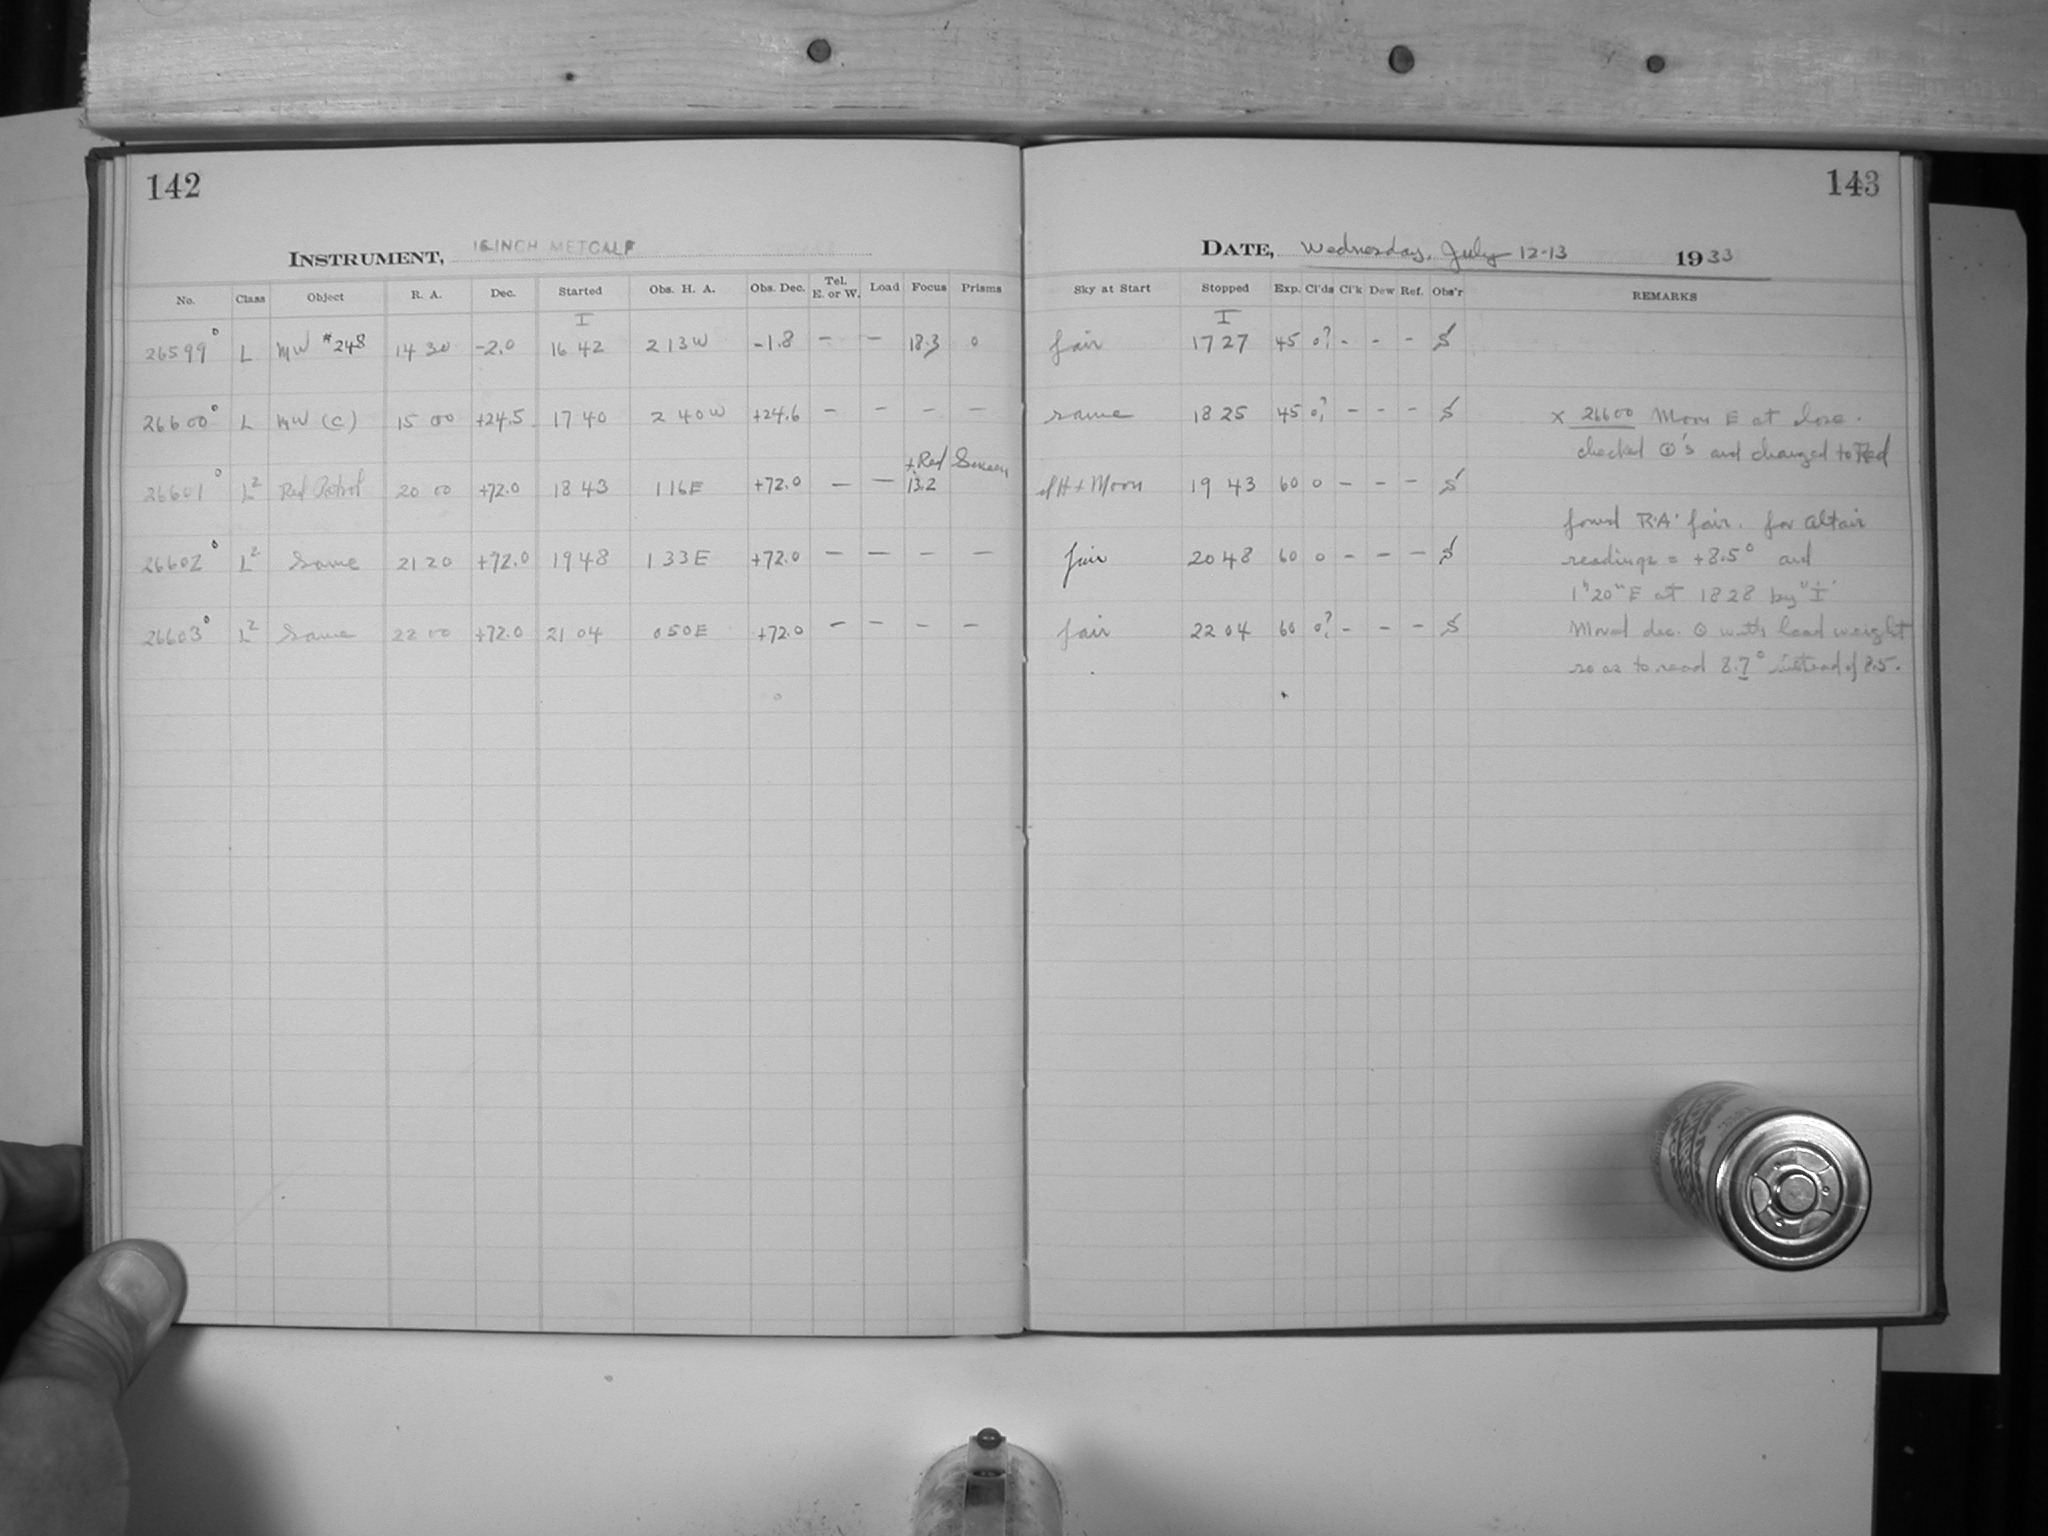 142
143
INSTRUMENT, 16 INCH METCALF
DATE, Wednesday, July 12-13 1933
No. Class Object R. A. Dec. Started Obs. H. A. Obs. Dec. Tel. E. or W. Load Focus Prisms Sky at Start Stopped Exp. Cl'ds Cl'k Dew Ref. Obs'r REMARKS
I I
26599° L MW #248 14 30 -2.0 16 42 2 13 W -1.8 - - 18.3 0 fair 17 27 45 0? - - - S
26600° L MW (C) 15 00 +24.5 17 40 2 40 W +24.6 - - - - same 18 25 45 0? - - - S x 26600 Moon E at close.
checked O's and changed to Red
+ Red Screen
26601° L² Red Patrol 20 00 +72.0 18 43 1 16 E +72.0 - - 13.2 + Moon 19 43 60 0 - - - S
found R.A. fair. for Altair
26602° L² Same 21 20 +72.0 19 48 1 33 E +72.0 - - - - fair 20 48 60 0 - - - S readings = +8.5° and
1h 20m E at 18 28 by "I"
26603° L² Same 22 00 +72.0 21 04 0 50 E +72.0 - - - - fair 22 04 60 0? - - - S Moved dec. O with lead weight
so as to read 8.7° instead of 8.5.